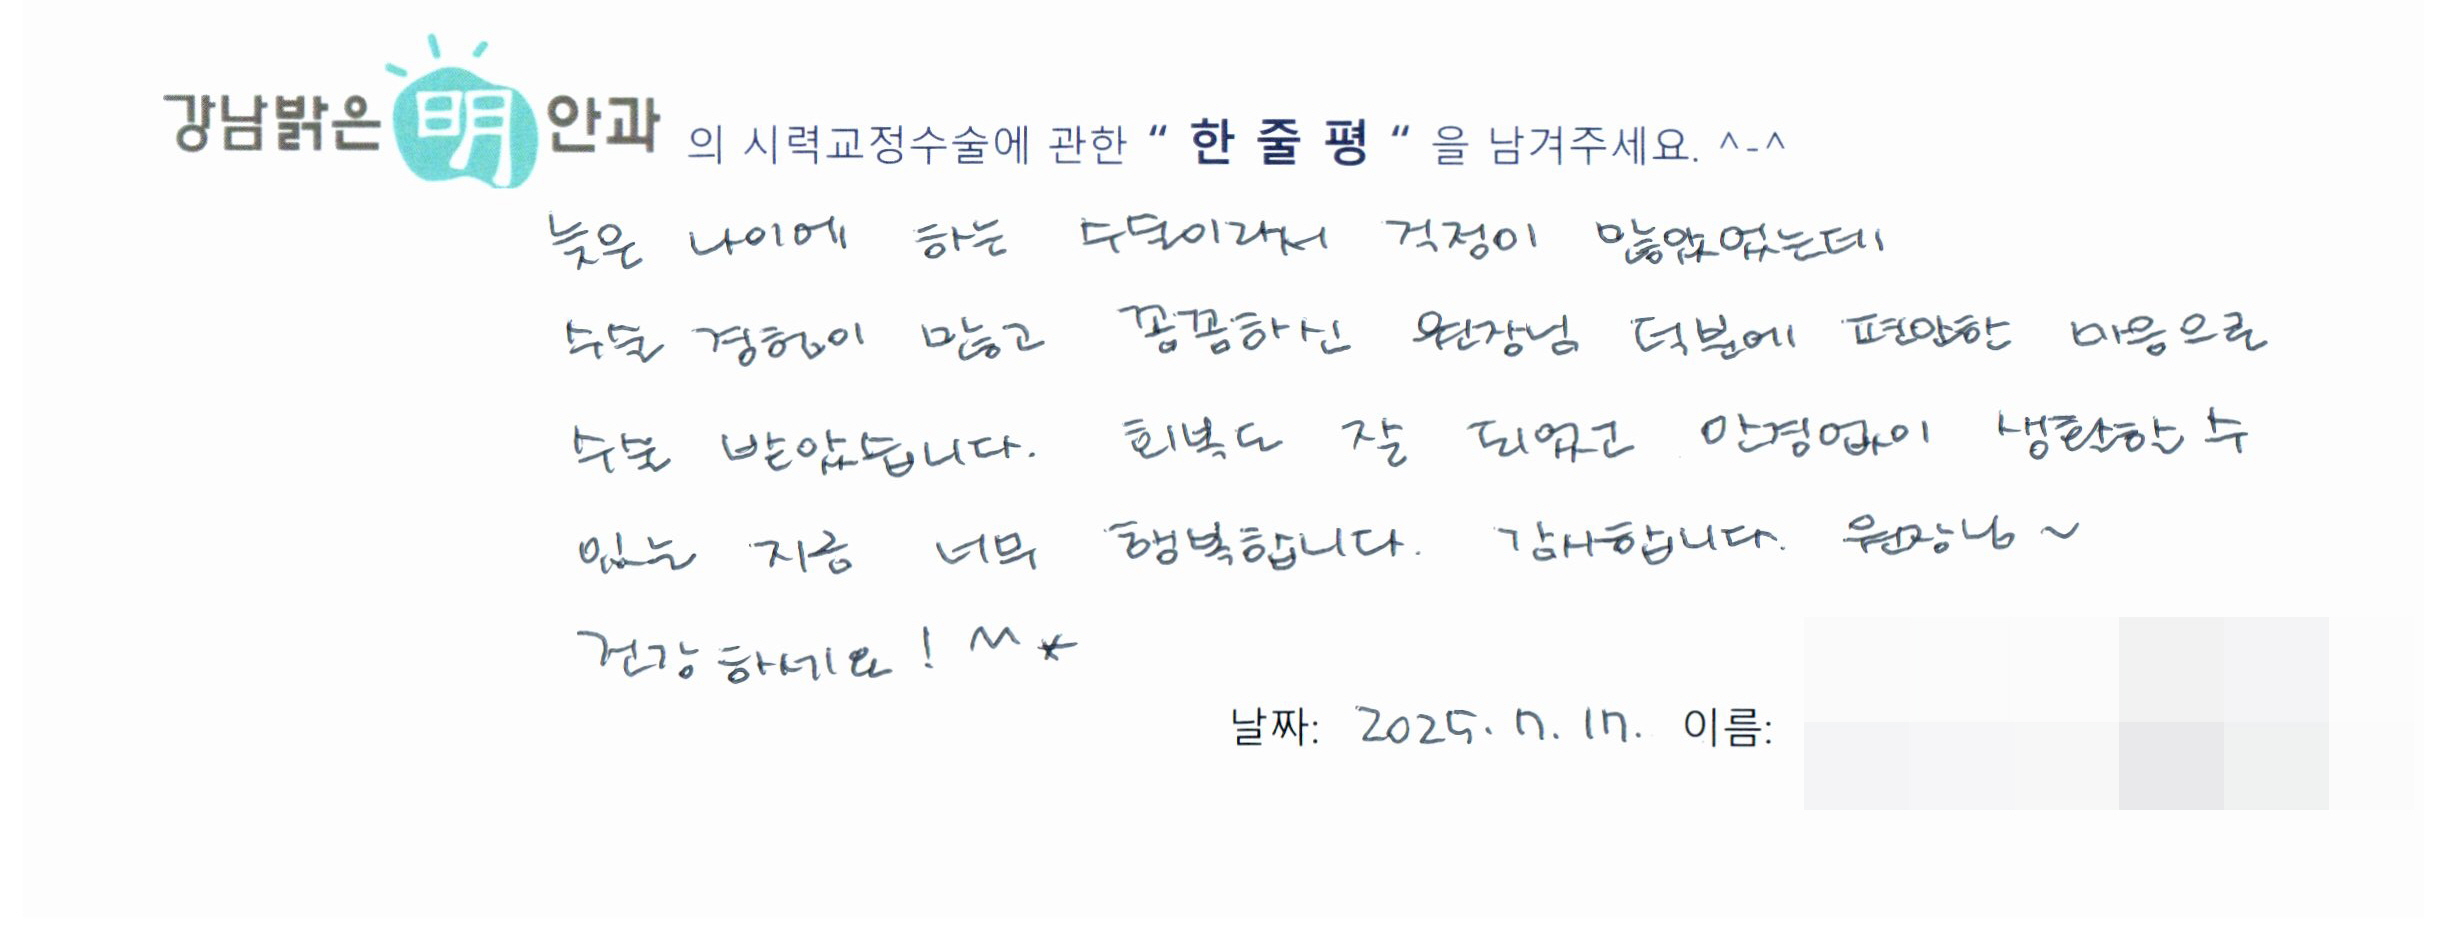 강남밝은 明 안과 의 시력교정수술에 관한 “ 한 줄 평 “ 을 남겨주세요. ^-^
늦은 나이에 하는 수술이라서 걱정이 많았었는데
수술 경험이 많고 꼼꼼하신 원장님 덕분에 편안한 마음으로
수술 받았습니다. 회복도 잘 되었고 안경없이 생활할 수
있는 지금 너무 행복합니다. 감사합니다. 원장님~
건강하세요! ^^*
날짜: 2025. 7. 17. 이름: